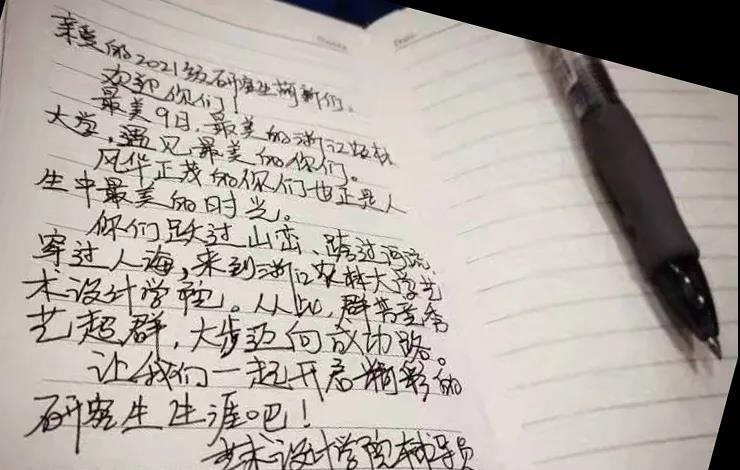 亲爱的2021级研究生萌新们,
欢迎你们!
最美9月,最美的浙江农林
大学,遇见最美的你们。
风华正茂的你们也正是人
生中最美的时光。
你们跃过山峦、跨过河流、
穿过人海,来到浙江农林大学艺
术设计学院。从此,群芳竞秀
艺超群,大步迈向成功路。
让我们一起开启精彩的
研究生生涯吧!
艺术设计学院辅导员